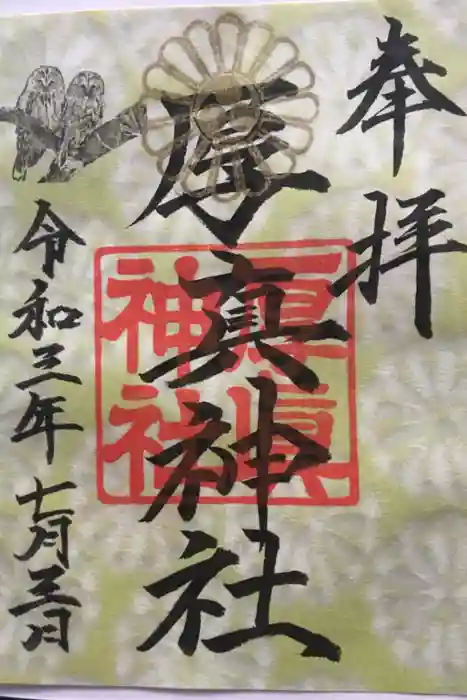 奉拝
厚真神社
厚眞
神社
令和三年七月日